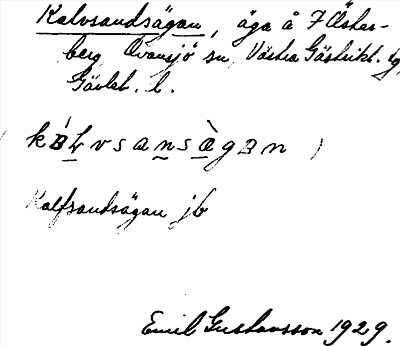 Kalvsandsägan, äga å 7 Öster-
berg Ovansjö sn, Västra Gästrikl. tg,
Gävleb. l.
kaLvsansägan
Kalfsandsägan jb
Emil Gustavsson 1929.